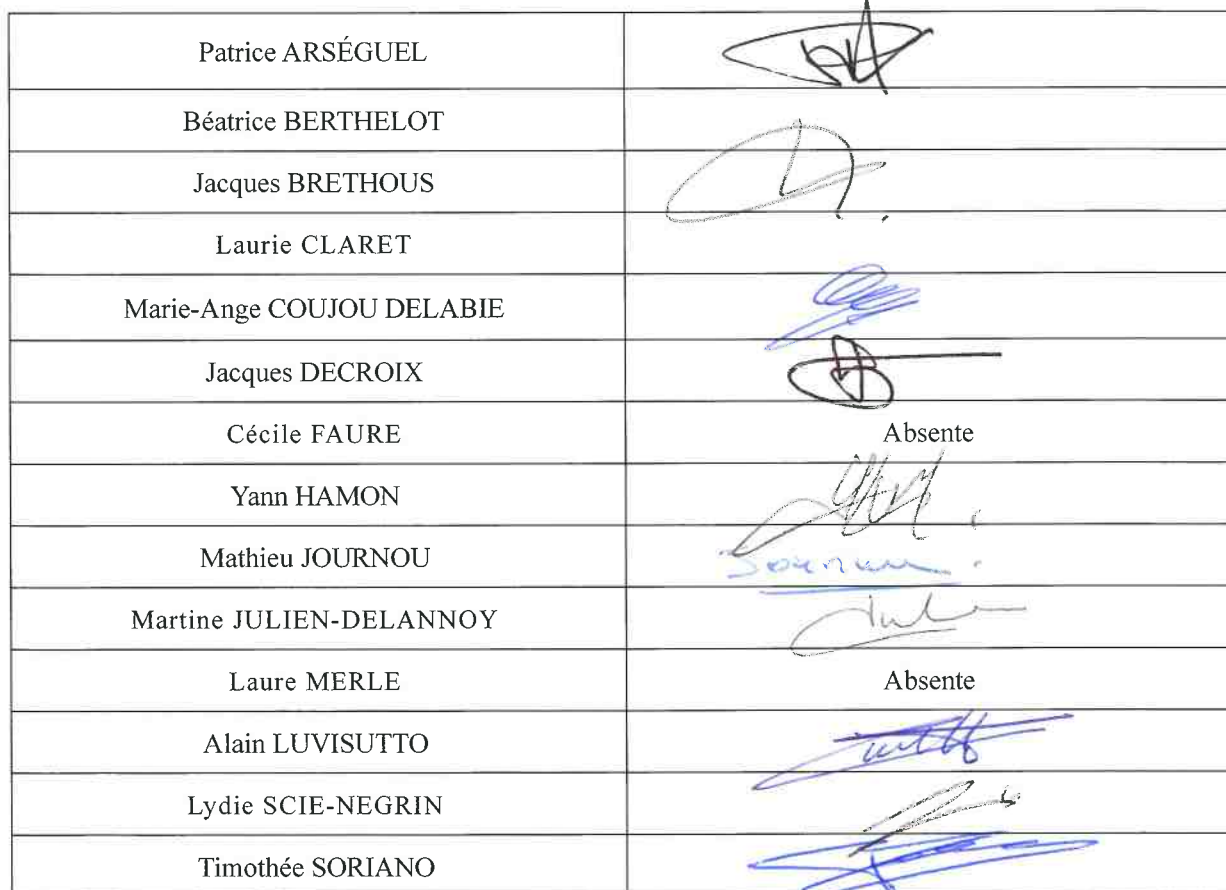 Patrice ARSÉGUEL
Béatrice BERTHELOT
Jacques BRETHOUS
Laurie CLARET
Marie-Ange COUJOU DELABIE
Jacques DECROIX
Cécile FAURE Absente
Yann HAMON
Mathieu JOURNOU
Martine JULIEN-DELANNOY
Laure MERLE Absente
Alain LUVISUTTO
Lydie SCIE-NEGRIN
Timothée SORIANO